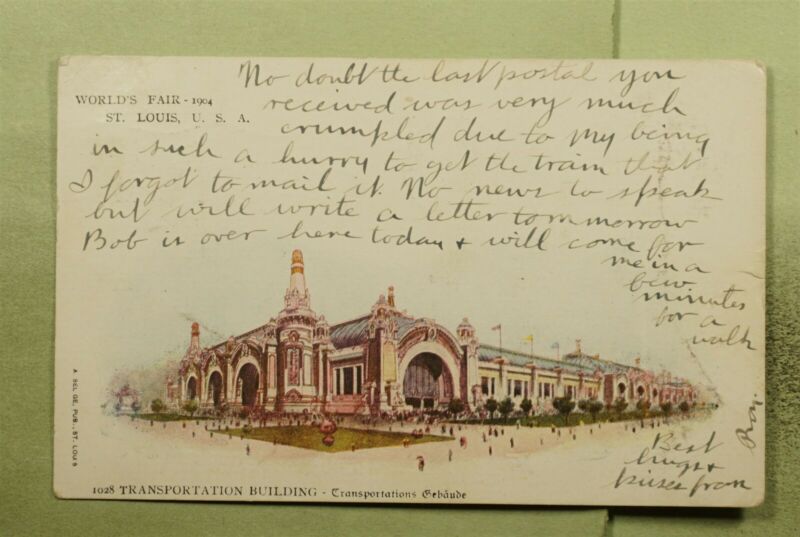 WORLD'S FAIR - 1904
ST. LOUIS, U. S. A.
No doubt the last postal you
received was very much
crumpled due to my being
in such a hurry to get the train that
I forgot to mail it. No news to speak
but will write a letter tommorrow
Bob is over here today + will come for
me in a
few
minutes
for a
walk
Best
hugs +
kisses from
Ray.
A. SELIGE, PUB., ST. LOUIS
1028 TRANSPORTATION BUILDING - Transportations Gebäude